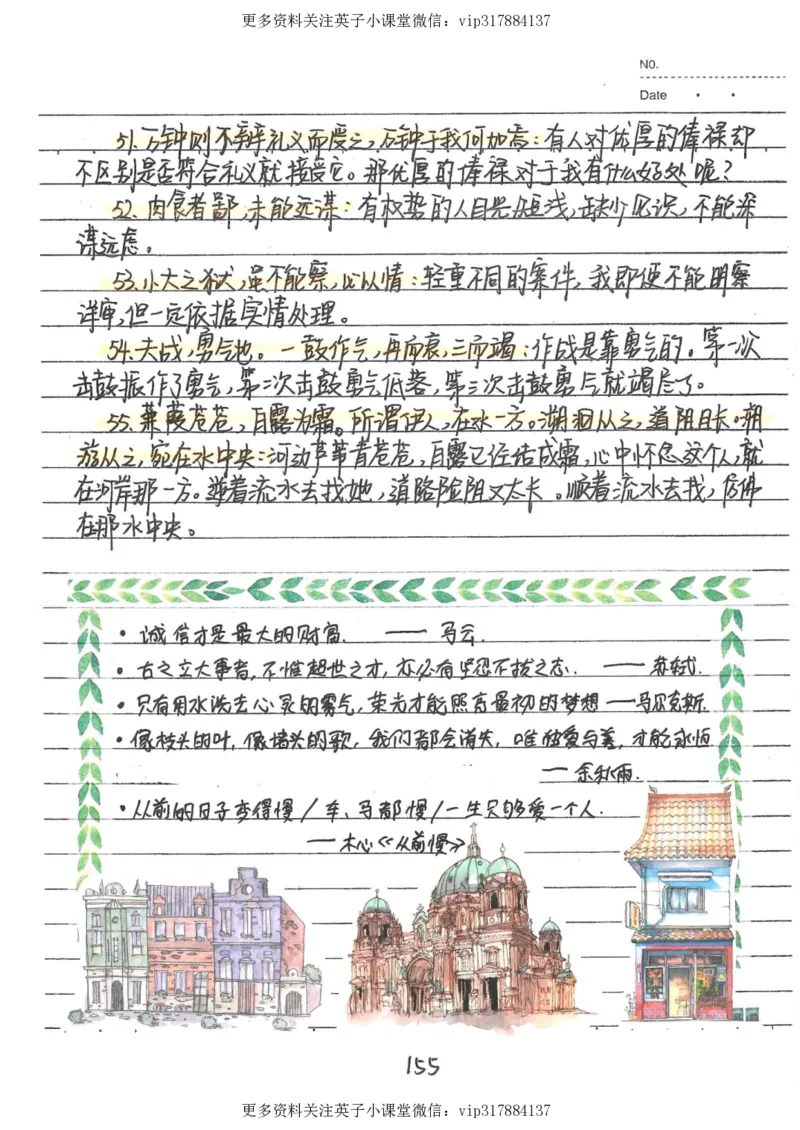 更多资料关注英子小课堂微信：vip317884137
No.
Date
51.万钟则不辩礼义而受之，万钟于我何加焉：有人对优厚的俸禄却
不区别是否符合礼义就接受它。那优厚的俸禄对于我有什么好处呢？
52.肉食者鄙，未能远谋：有权势的人目光短浅，缺少见识，不能深
谋远虑。
53.小大之狱，虽不能察，必以情：轻重不同的案件，我即便不能明察
详审，但一定依据实情处理。
54.夫战，勇气也。一鼓作气，再而衰，三而竭：作战是靠勇气的。第一次
击鼓振作了勇气，第二次击鼓勇气低落，第三次击鼓勇气就竭尽了。
55.蒹葭苍苍，白露为霜。所谓伊人，在水一方。溯洄从之，道阻且长。溯
游从之，宛在水中央：河边芦苇青苍苍，白露已经结成霜，心中怀念这个人，就
在河岸那一方。逆着流水去找她，道路险阻又太长。顺着流水去找，仿佛
在那水中央。
• 诚信才是最大的财富. —— 马云.
• 古之立大事者，不惟超世之才，亦必有坚忍不拔之志. —— 苏轼.
• 只有用水洗去心灵的雾气，荣光才能照亮最初的梦想 ——马尔克斯.
• 像枝头的叶，像墙头的歌，我们都会消失，唯独爱与善，才能永恒
— 余秋雨.
• 从前的日子变得慢/车、马都慢/一生只够爱一个人.
— 木心《从前慢》
155
更多资料关注英子小课堂微信：vip317884137